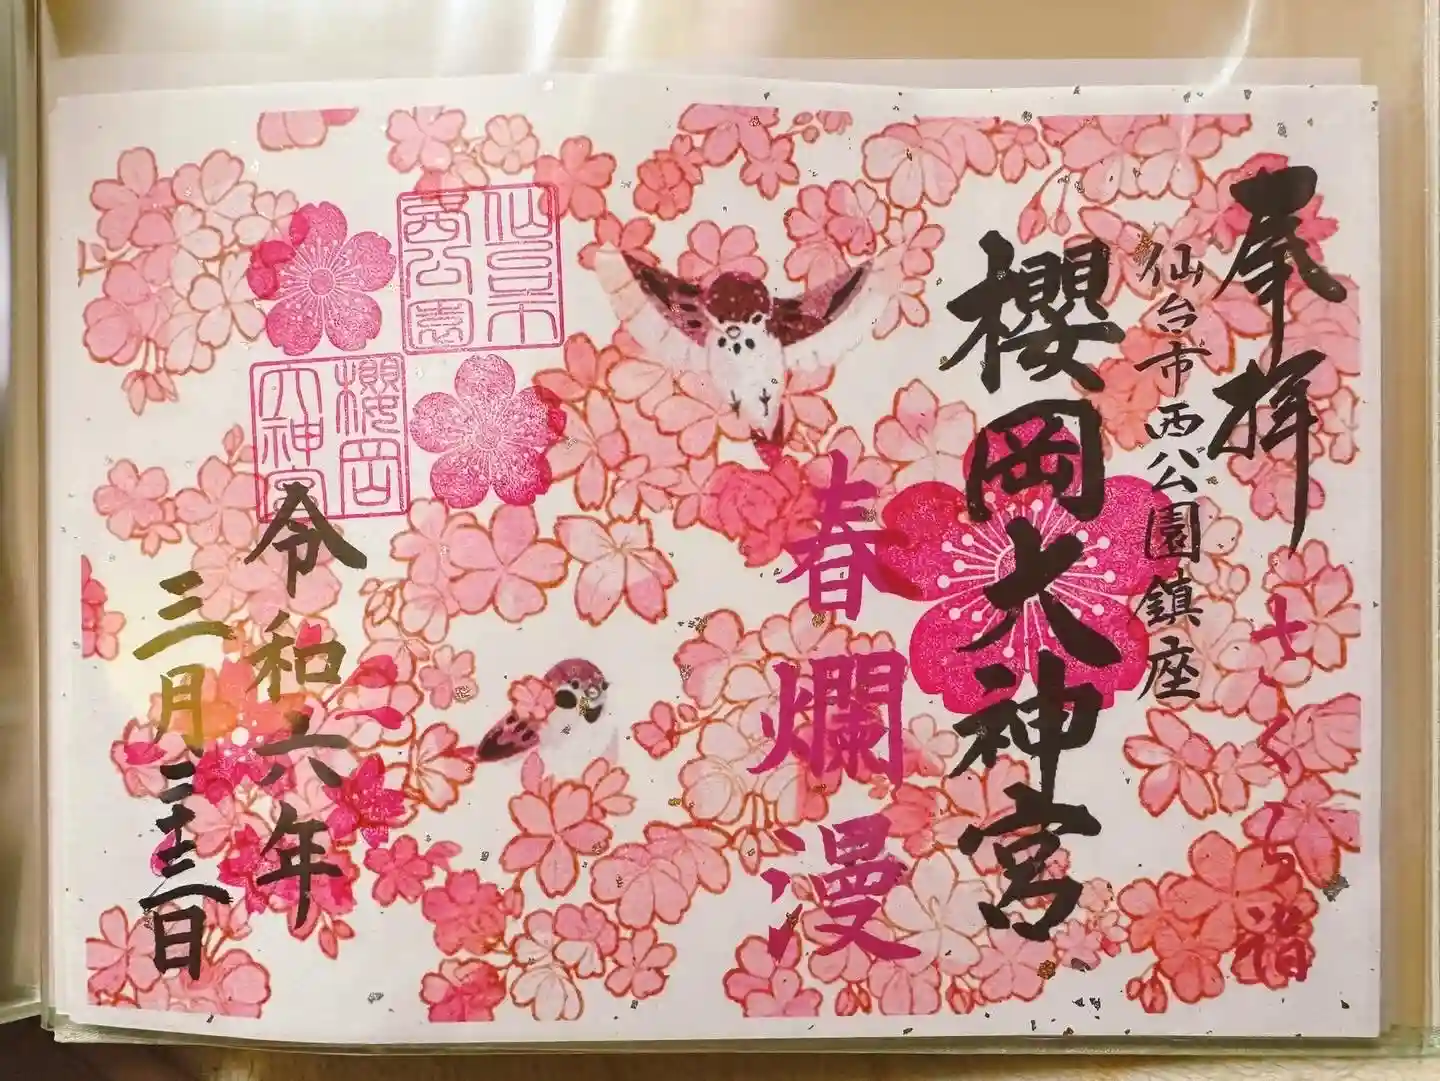 奉拝
さくら詣
仙台市西公園鎮座
櫻岡大神宮
春爛漫
仙台市
西公園
櫻岡
大神宮
令和六年
三月二十三日